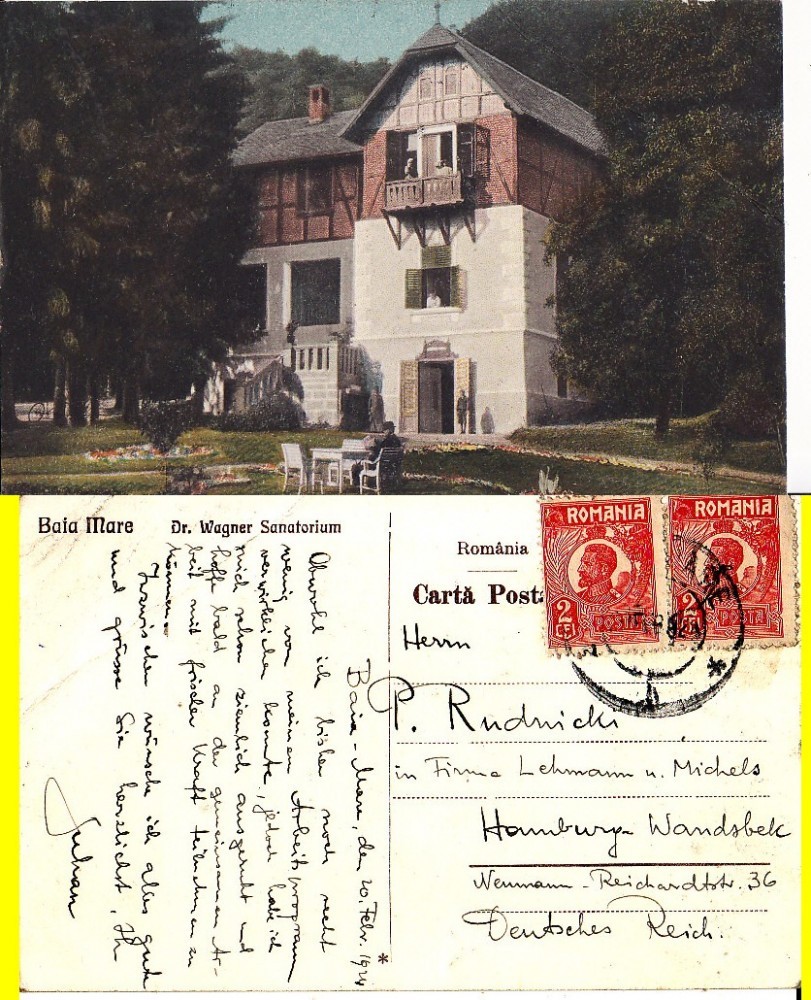 Baia Mare Dr. Wagner Sanatorium
România
Carta Post
ROMANIA
2
LEI
POSTA
ROMANIA
2
POSTA
Herrn
P. Rudnicki
in Firma Lehmann u. Michels
Hamburg-Wandsbek
Neumann-Reichardtstr. 36
Deutsches Reich.
Baia-Mare, den 20. Febr. 1924
Obwohl ich bisher noch recht
wenig von meinem Arbeitsprogramm
verwirklichen konnte, jedoch habe ich
mich schon ziemlich ausgeruht und
hoffe bald an der gemeinsamen Ar-
beit mit frischer Kraft teilnehmen zu
können.
Inzwischen wünsche ich alles gute
und grüsse Sie herzlichst, Ihr
*